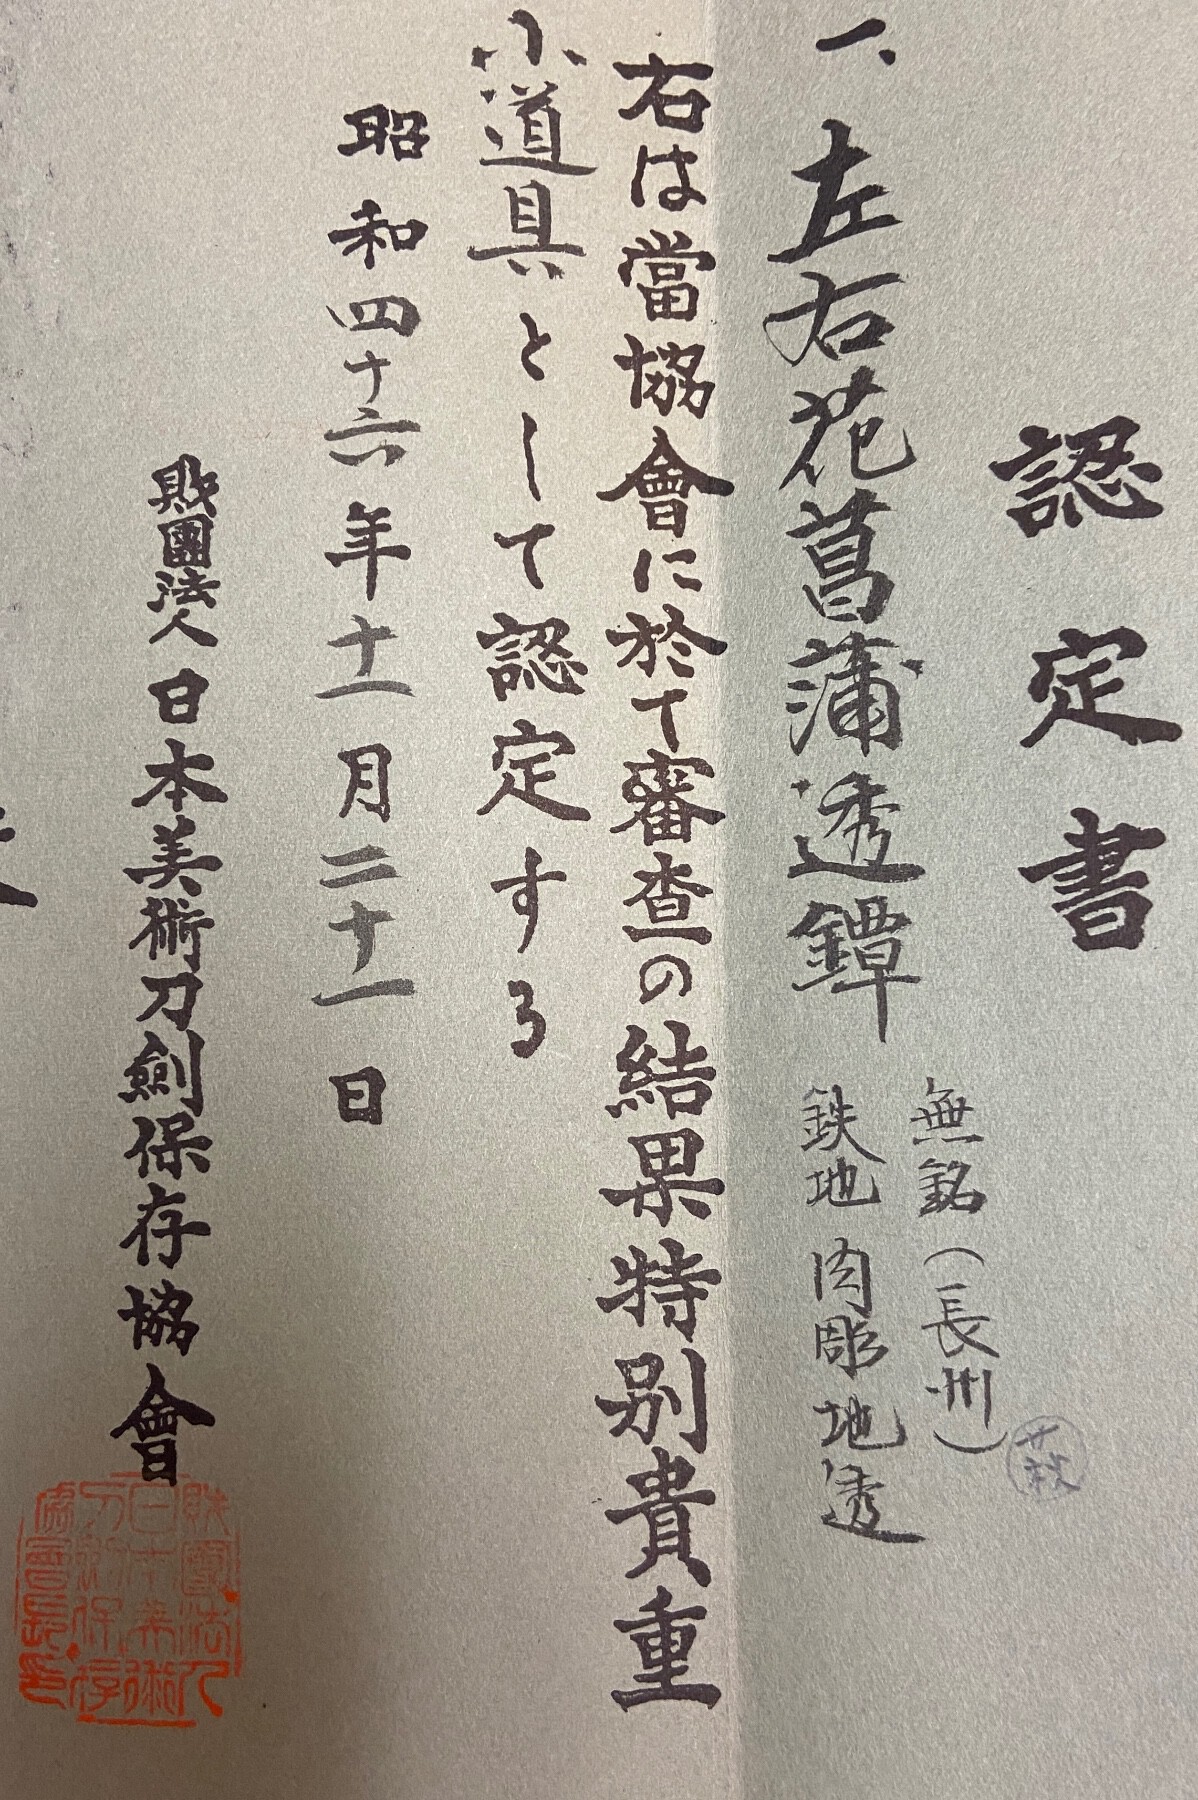 認定書
一、左右花菖蒲透鐔
無銘（長州）
萩
鉄地肉彫地透
右は當協會に於て審査の結果特別貴重
小道具として認定する
昭和四十六年十一月二十一日
財團法人日本美術刀劍保存協會
財團法人
日本美術
刀剣保存
協會長印